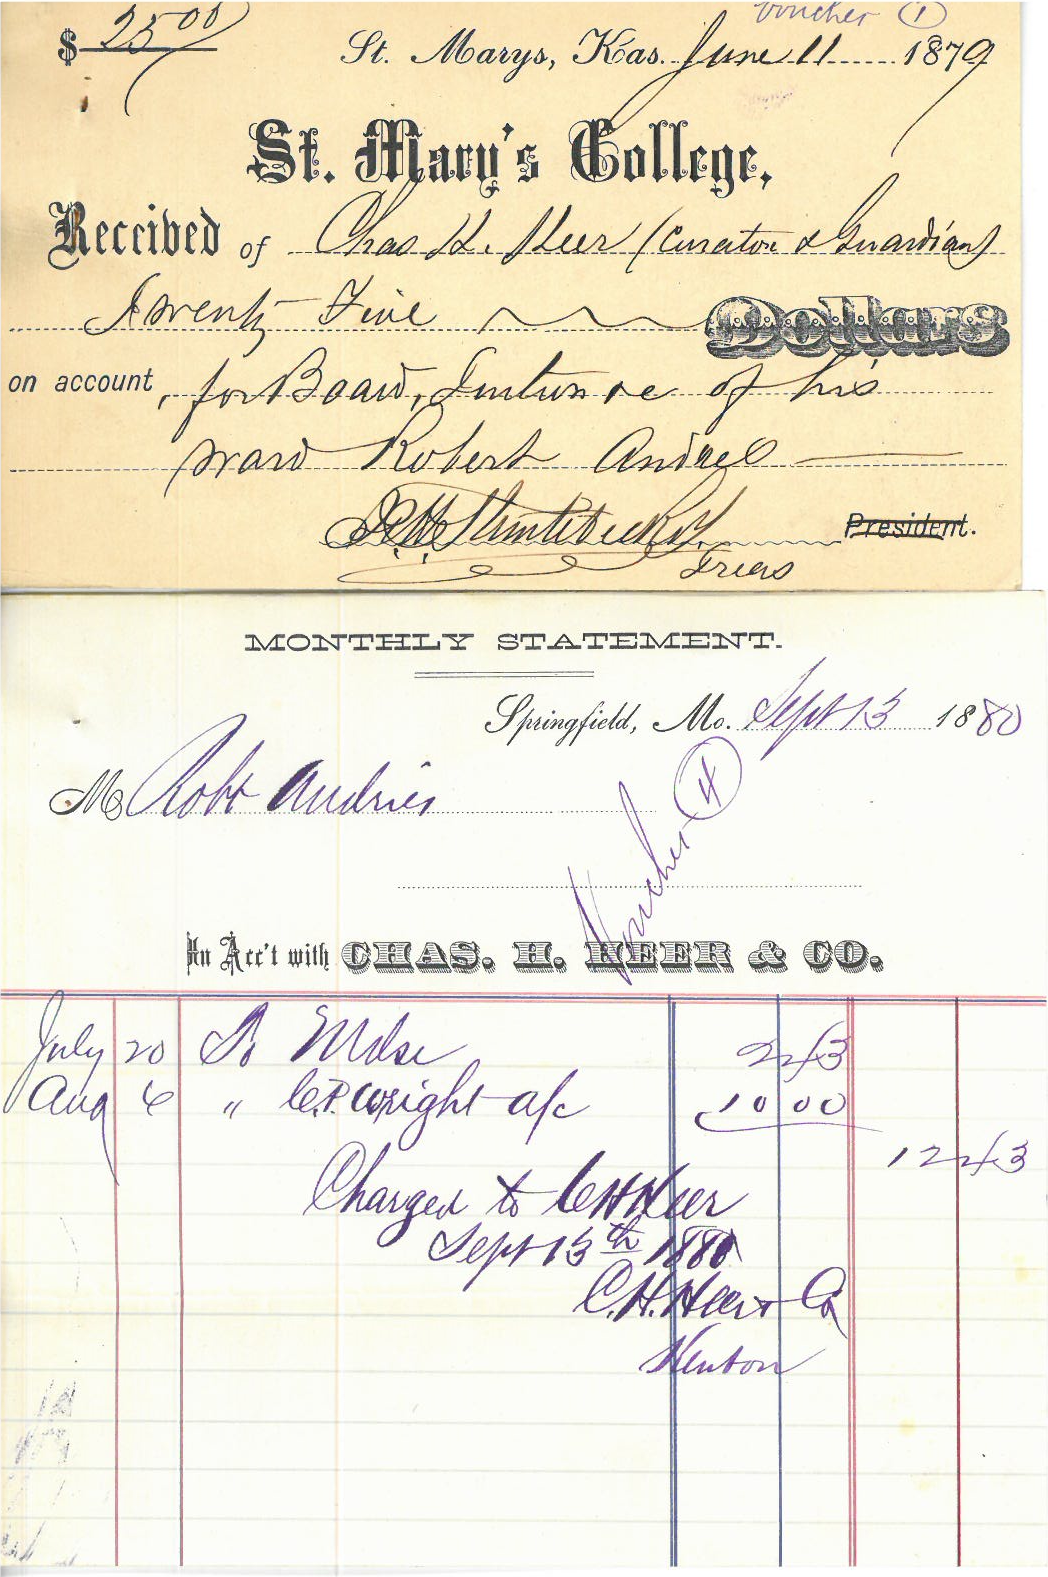 Voucher 1
$ 25 00 St. Marys, Kas. June 11 1879
St. Mary's College,
Received of Chas H. Heer (Curator & Guardian)
Twenty Five Dollars
on account, for Board, Tuition &c of his
ward Robert
President.
Treas
MONTHLY STATEMENT.
Springfield, Mo. Sept 13 1880
M Robt Andries
Voucher 4
In Acc't with CHAS. H. HEER & CO.
July 20 To Mdse 2 43
Aug 6 " C.P. Wright a/c 10 00
12 43
Charged to C H Heer
Sept 13th 1880
C. H. Heer & Co